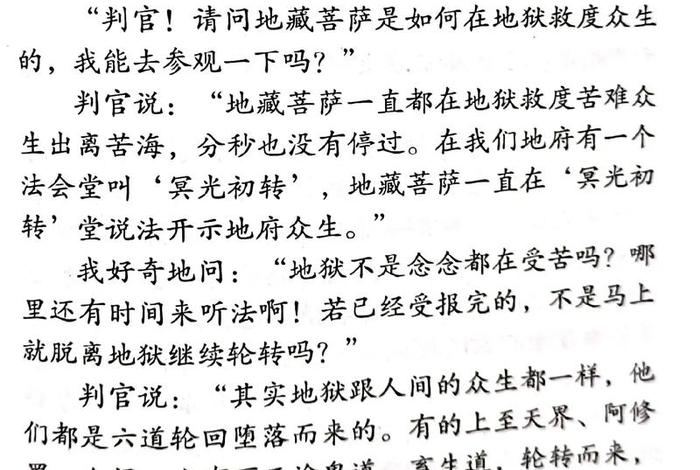 “判官！请问地藏菩萨是如何在地狱救度众生
的，我能去参观一下吗？”
判官说：“地藏菩萨一直都在地狱救度苦难众
生出离苦海，分秒也没有停过。在我们地府有一个
法会堂叫‘冥光初转’，地藏菩萨一直在‘冥光初
转’堂说法开示地府众生。”
我好奇地问：“地狱不是念念都在受苦吗？哪
里还有时间来听法啊！若已经受报完的，不是马上
就脱离地狱继续轮转吗？”
判官说：“其实地狱跟人间的众生都一样，他
们都是六道轮回堕落而来的。有的上至天界、阿修
道、畜生道，轮转而来，